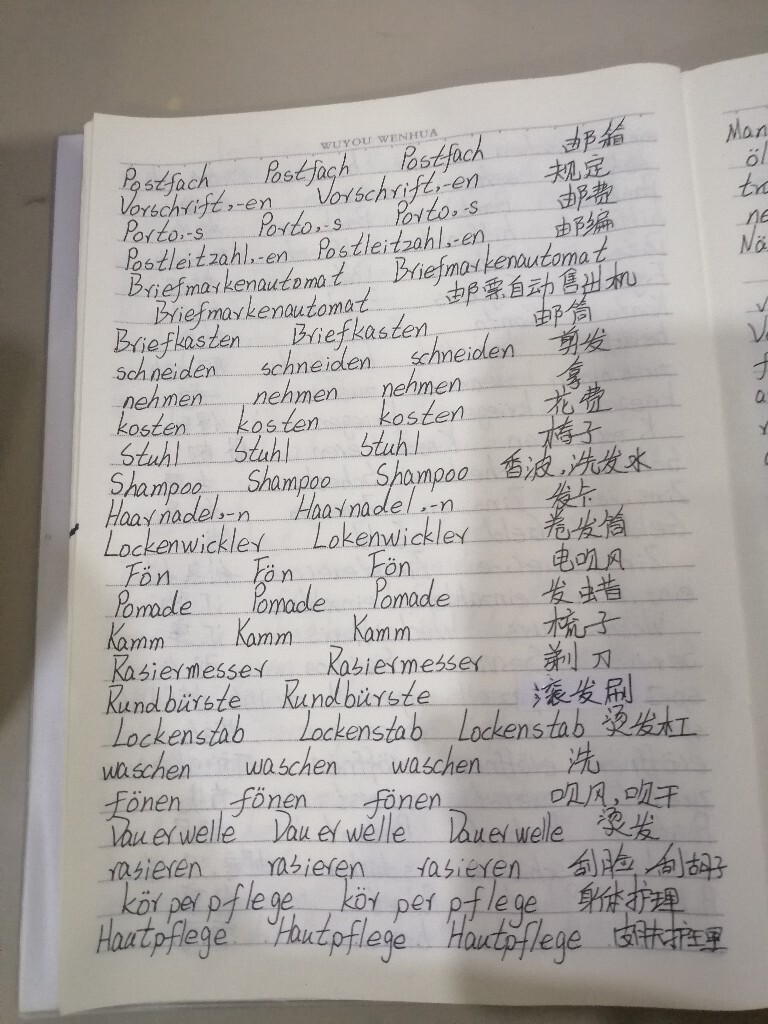 WUYOU WENHUA
Postfach Postfach Postfach 邮箱
Vorschrift,-en Vorschrift,-en 规定
Porto,-s Porto,-s Porto,-s 邮费
Postleitzahl,-en Postleitzahl,-en 邮编
Briefmarkenautomat Briefmarkenautomat
Briefmarkenautomat 邮票自动售出机
Briefkasten Briefkasten 邮筒
schneiden schneiden schneiden 剪发
nehmen nehmen nehmen 拿
kosten kosten kosten 花费
Stuhl Stuhl Stuhl 椅子
Shampoo Shampoo Shampoo 香波,洗发水
Haarnadel,-n Haarnadel,-n 发卡
Lockenwickler Lokenwickler 卷发筒
Fön Fön Fön 电吹风
Pomade Pomade Pomade 发蜡
Kamm Kamm Kamm 梳子
Rasiermesser Rasiermesser 剃刀
Rundbürste Rundbürste 滚发刷
Lockenstab Lockenstab Lockenstab 烫发杠
waschen waschen waschen 洗
fönen fönen fönen 吹风,吹干
Dauerwelle Dauerwelle Dauerwelle 烫发
rasieren rasieren rasieren 刮脸,刮胡子
körperpflege körperpflege 身体护理
Hautpflege Hautpflege Hautpflege 皮肤护理
Man
öl
tr
ne
Nä